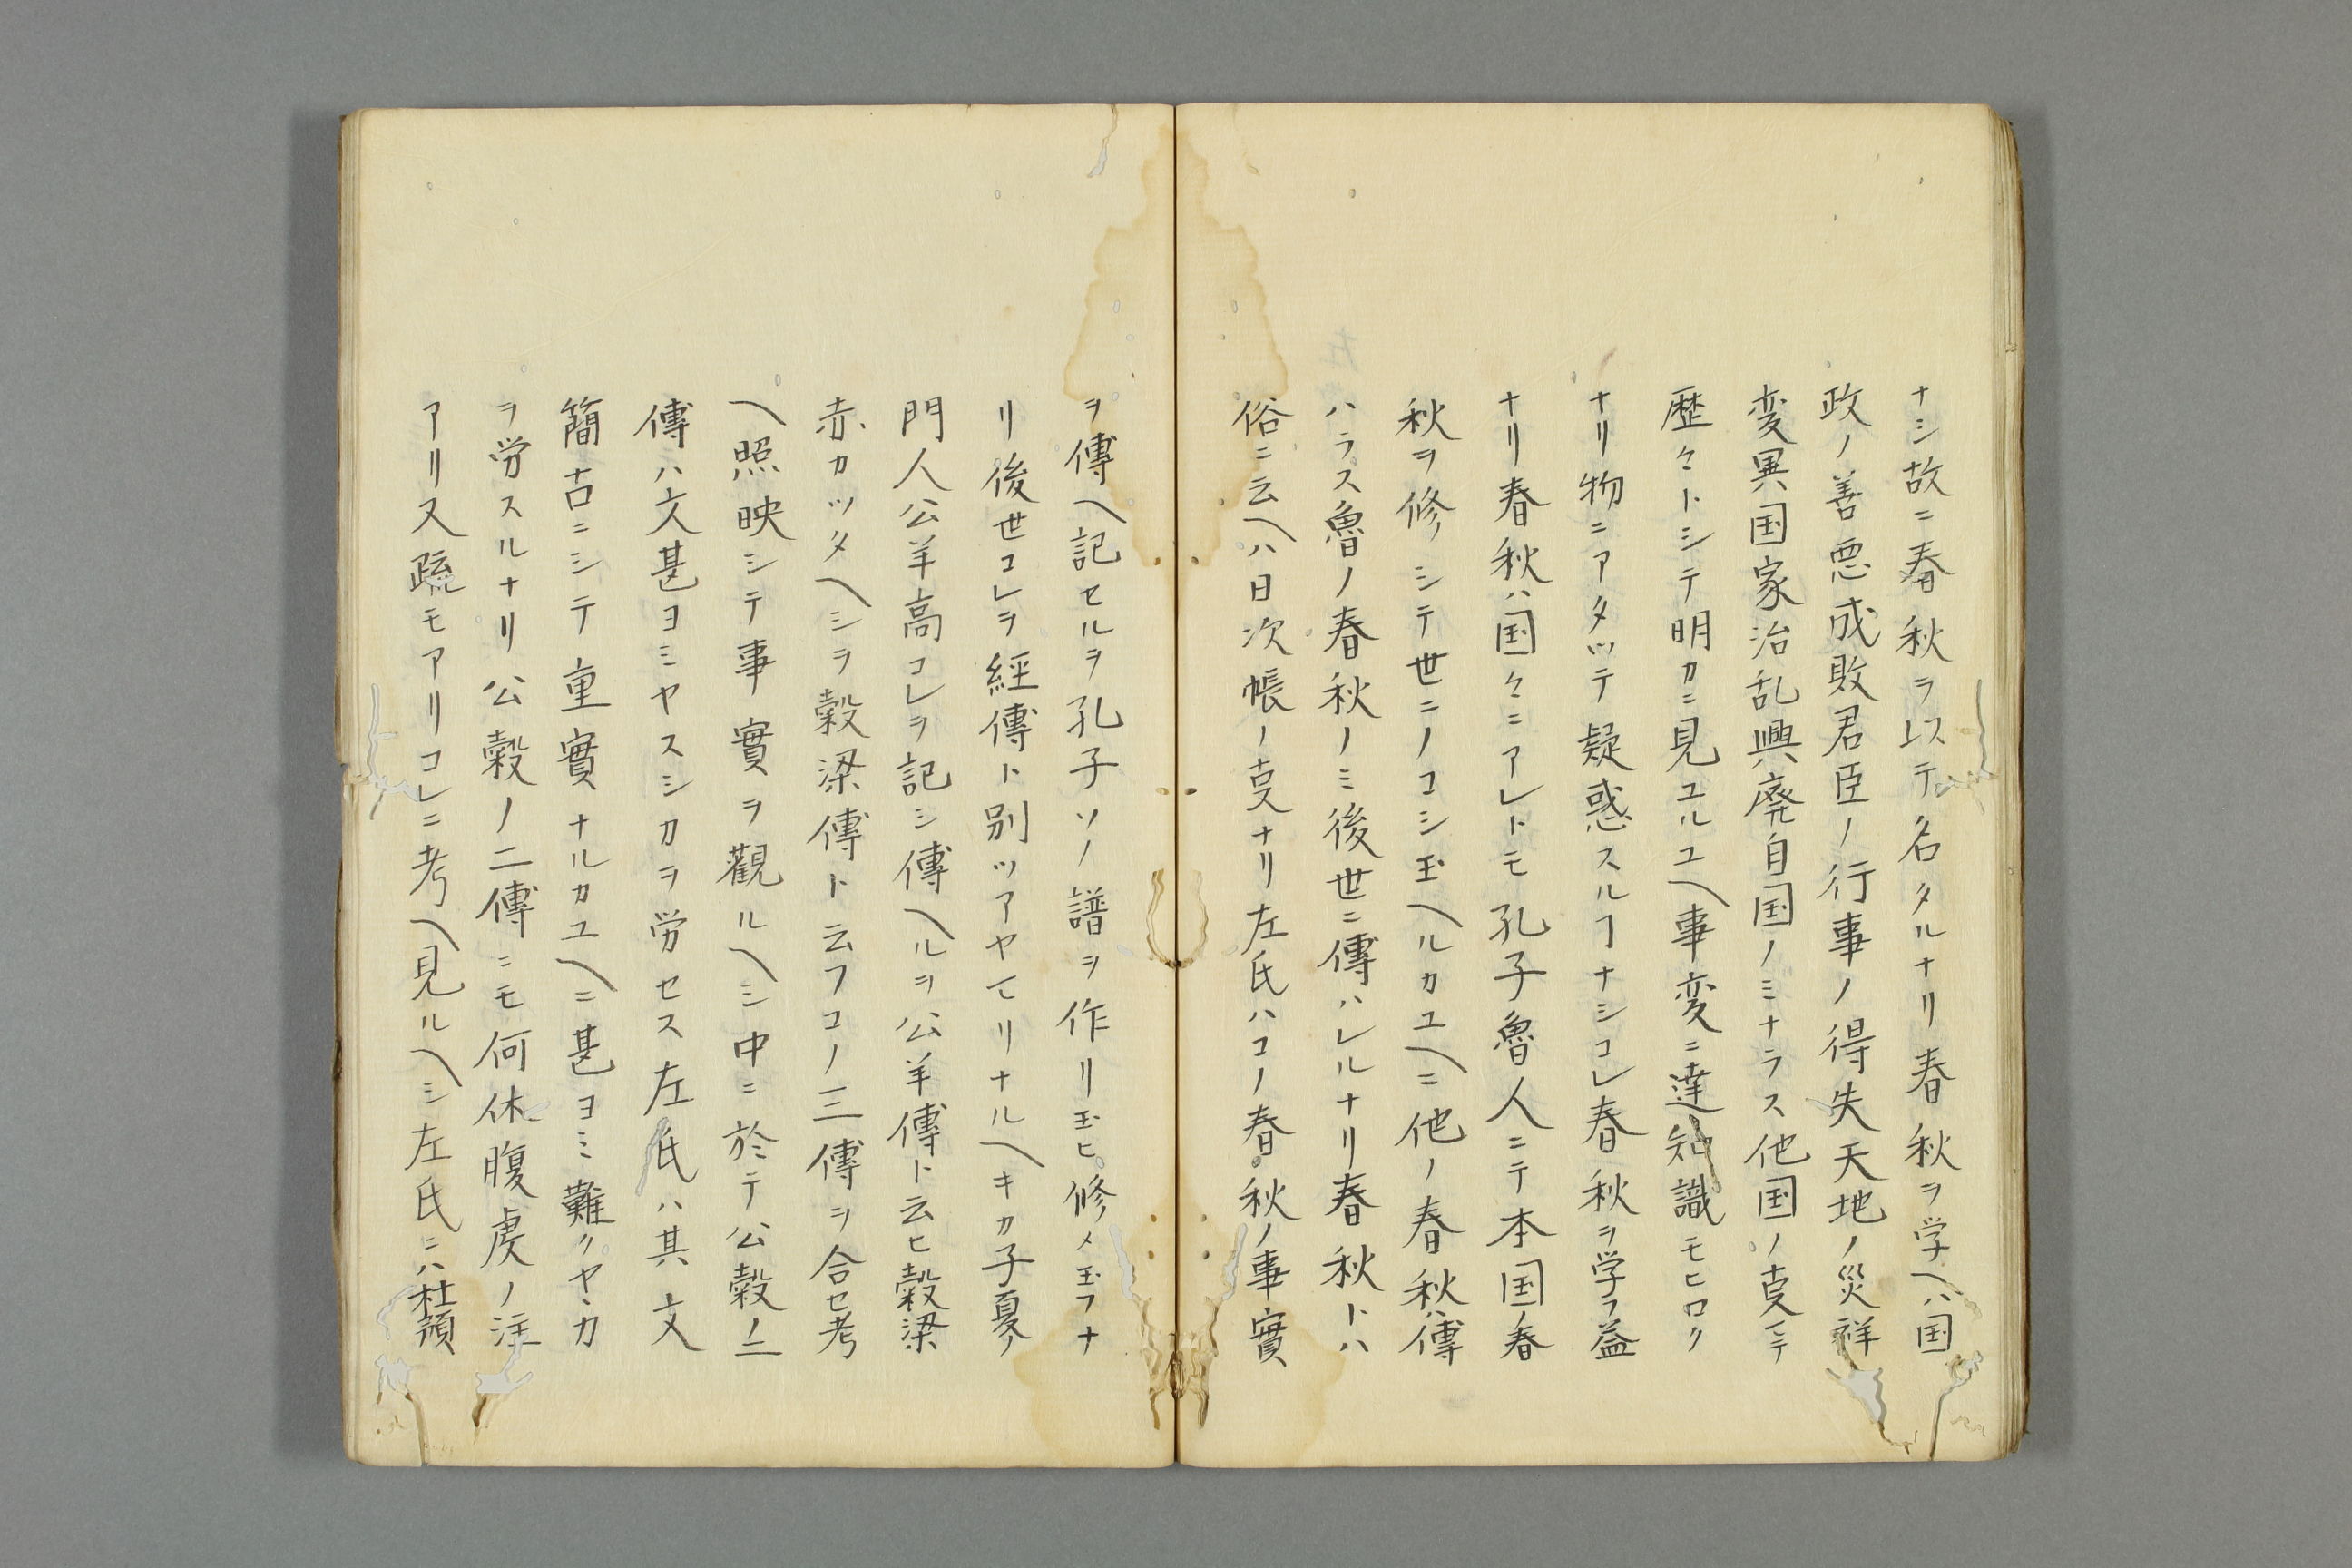 ナシ故ニ春秋ヲ以テ名タルナリ春秋ヲ学ヘハ国
政ノ善悪成敗君臣ノ行事ノ得失天地ノ災祥
変異国家治乱興廃自国ノミナラス他国ノ㕝マテ
歴々トシテ明カニ見ユルユヘ事変ニ達知識モヒロク
ナリ物ニアタツテ疑惑スルヿナシコレ春秋ヲ学フ益
ナリ春秋ハ国々ニアレトモ孔子魯人ニテ本国ノ春
秋ヲ修シテ世ニノコシ玉ヘルカユヘニ他ノ春秋ハ傳
ハラス魯ノ春秋ノミ後世ニ傳ハレルナリ春秋トハ
俗ニ云ヘハ日次帳ノ㕝ナリ左氏ハコノ春秋ノ事實
ヲ傳ヘ記セルヲ孔子ソノ譜ヲ作リ玉ヒ修メ玉フナ
リ後世コレヲ経傳ト別ツアヤマリナルヘキカ子夏ノ
門人公羊高コレヲ記シ傳ヘルヲ公羊傳ト云ヒ穀梁
赤カツタヘシヲ穀梁傳ト云フコノ三傳ヲ合セ考
ヘ照映シテ事實ヲ觀ルヘシ中ニ於テ公穀ノ二
傳ハ文甚ヨミヤスシカヲ労セス左氏ハ其文
簡古ニシテ重實ナルカユヘニ甚ヨミ難クヤヽカ
ヲ労スルナリ公穀ノ二傳ニモ何休腹虔ノ注
アリ又疏モアリコレニ考ヘ見ルヘシ左氏ニハ杜預